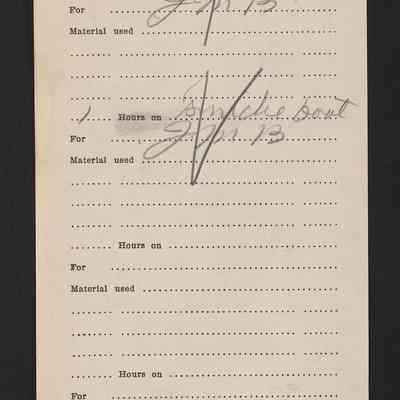 For J M B
Material used
1 Hours on boat
For J M B
Material used
Hours on
For
Material used
Hours on
For